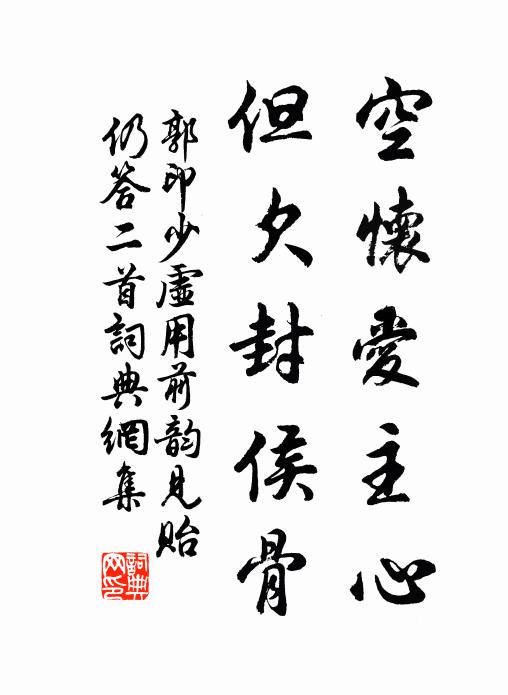 空懷愛主心
但欠封侯骨
郭印少虛用前韵見貽
仍答二首詞典網集
詞典
网印